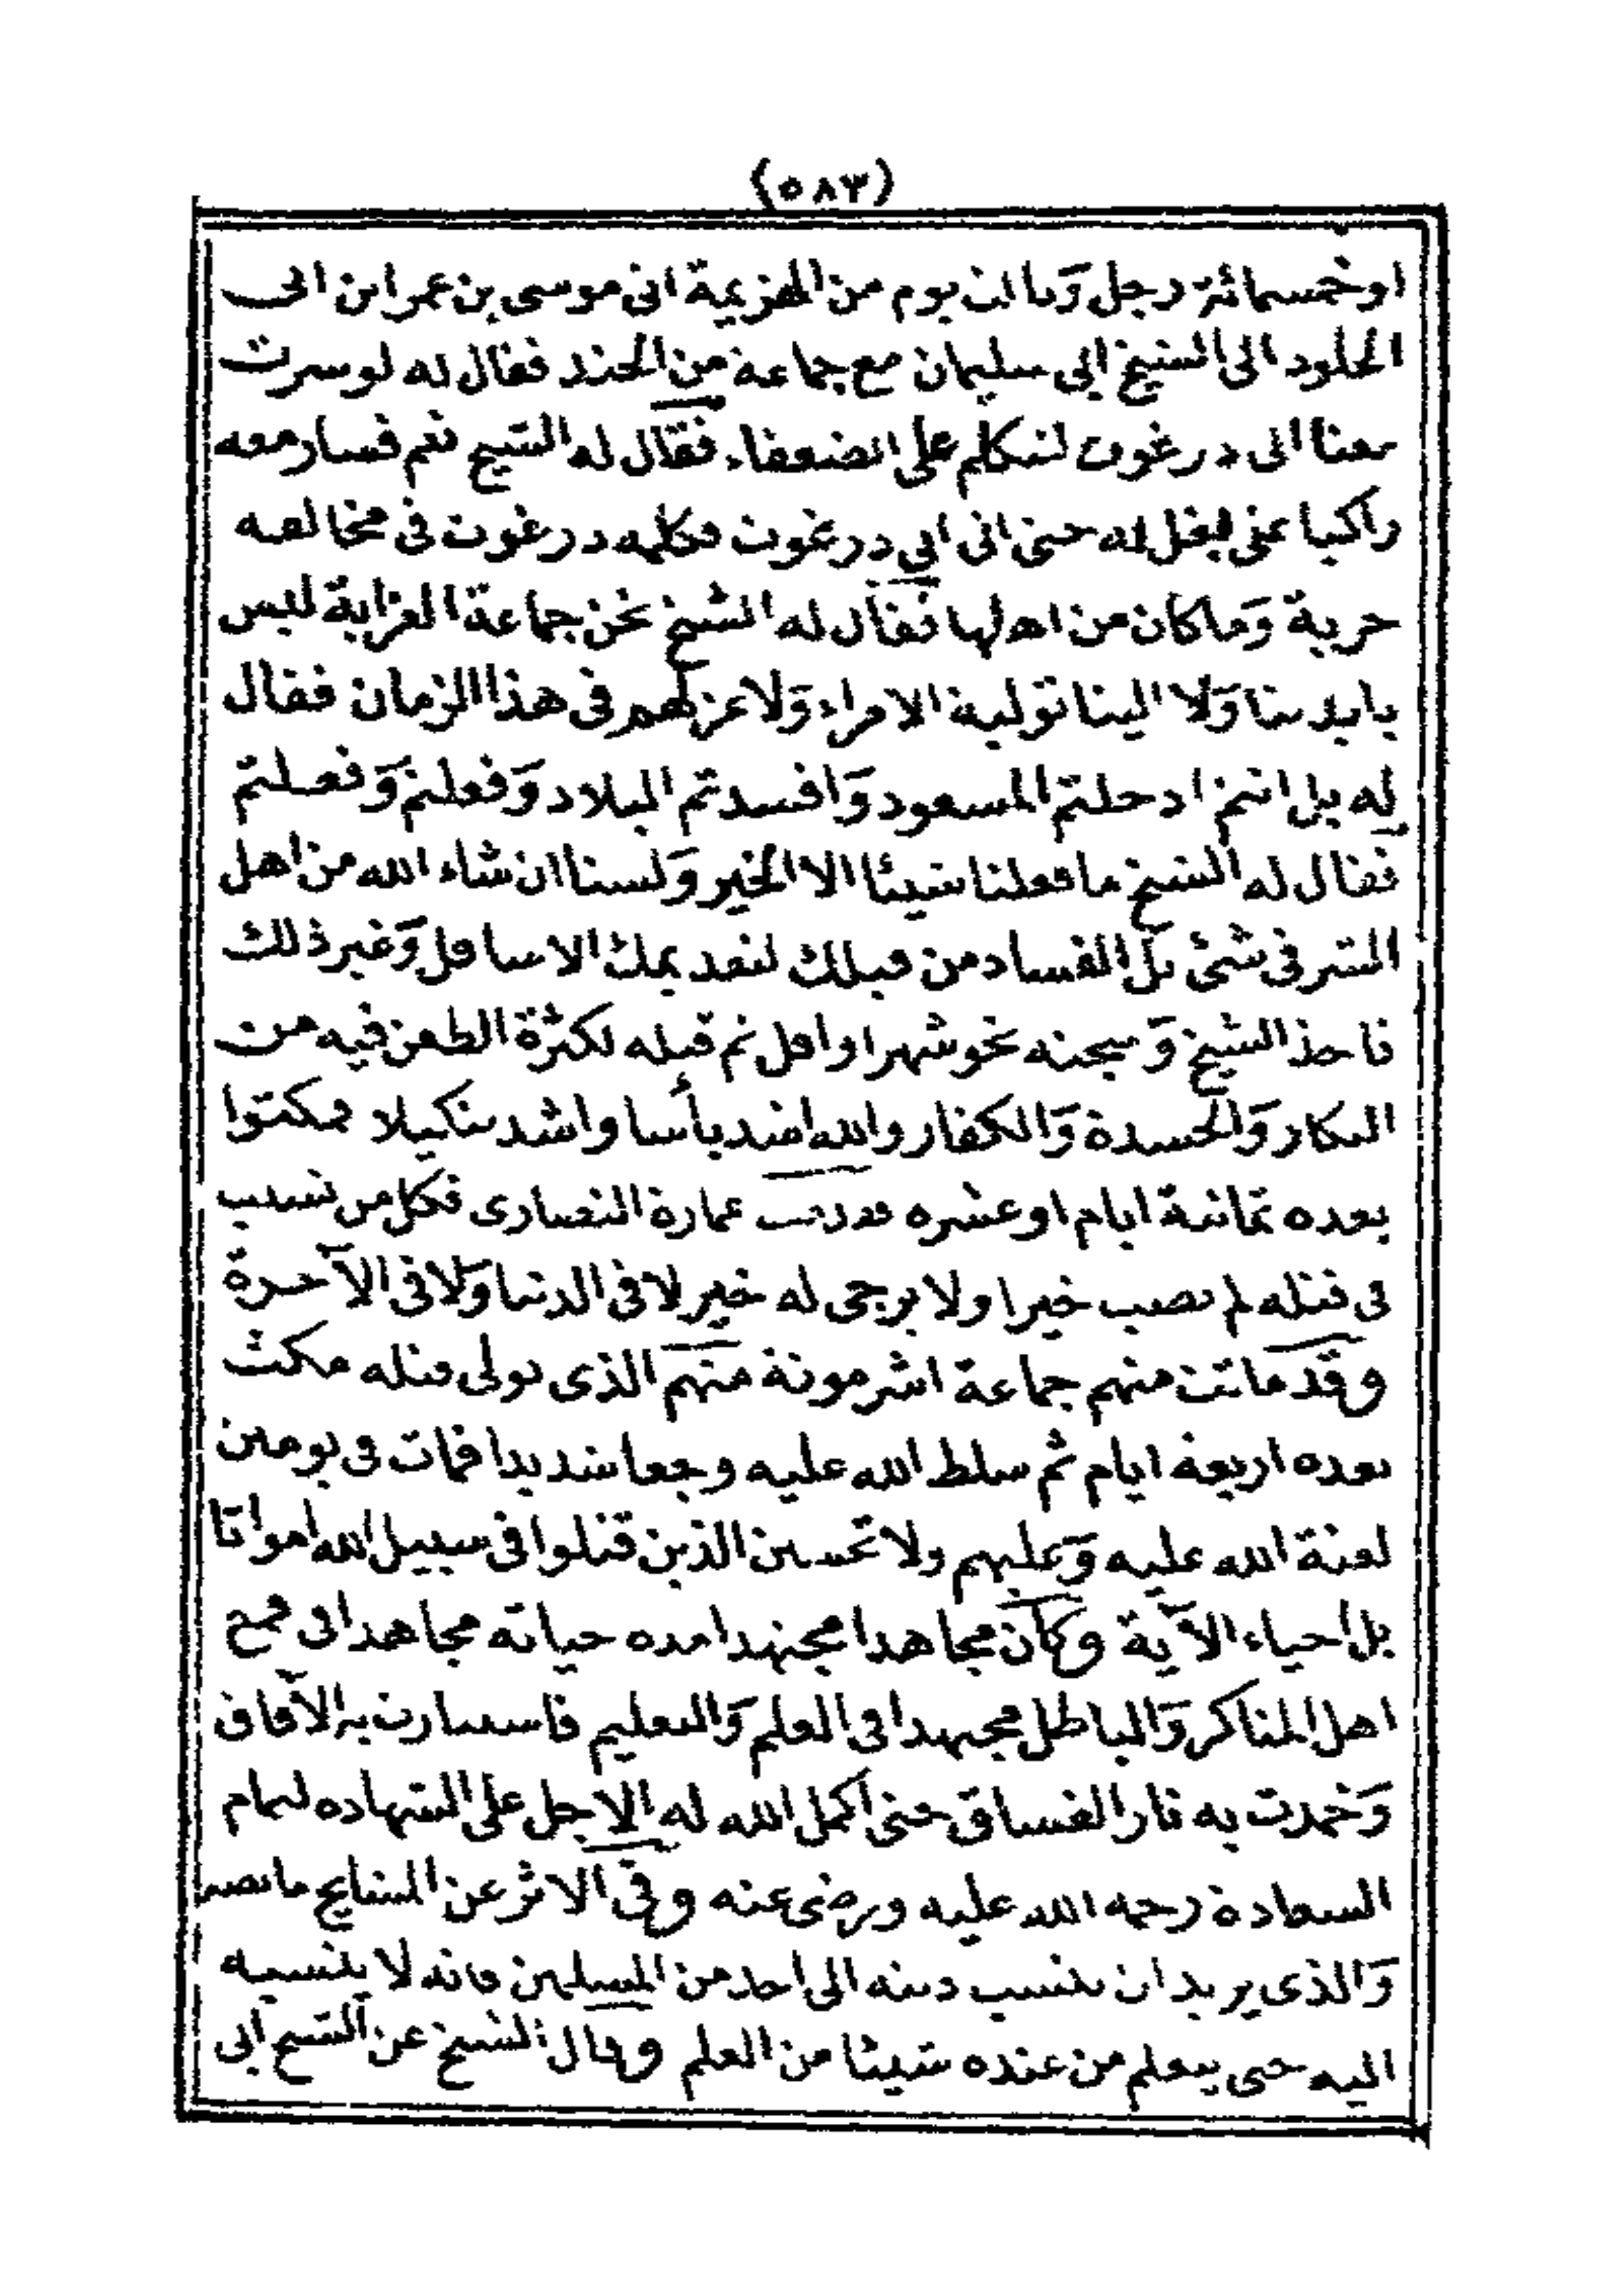 (٥٨٣)
او خمسمائة رجل وثالث يوم من الهزيمة اتى موسى بن عمر ابن ابى
الجلود الى الشيخ ابى سليمان مع جماعة من الجند فقال له لو سرت
معنا الى درغوت لتتكلم على الضعفاء فقال له الشيخ نعم فسار معه
راكبا على بغل له حتى اتى الى درغوت فكلمه درغوت فى مخالفة
جربة وَما كان من اهلها فقال له الشيخ نحن جماعة العزابة ليس
بايدينا وَلا الينا تولية الامراء وَلا عزلهم فى هذا الزمان فقال
له بل انتم ادخلتم المسعود وَافسدتم البلاد وَفعلتم وَفعلتم
فقال له الشيخ ما فعلنا شيئا الا الخير وَلسنا ان شاء الله من اهل
الشر فى شئ بل الفساد من قبلك لتقديمك الاسافل وَغير ذلك
فاخذ الشيخ وَسجنه نحو شهر او اقل ثم قتله لكثرة الطعن فيه من
النكار وَالحسدة وَالكفار والله اشد بأسا واشد تنكيلا فمكثوا
بعده ثمانية ايام او عشره فقدمت عمارة النصارى فكل من تسبب
فى قتله لم يصب خيرا ولا يرجى له خير لا فى الدنيا وَلا فى الآخرة
وقد ماتت منهم جماعة اشر موتة منهم الذى تولى قتله مكث
بعده اربعة ايام ثم سلط الله عليه وجعا شديدا فمات فى يومين
لعنة الله عليه وَعليهم ولا تحسبن الذين قتلوا فى سبيل الله امواتا
بل احياء الآية وكان مجاهدا مجتهدا مده حياته مجاهدا فى قمع
اهل المناكر وَالباطل مجتهدا فى العلم وَالتعليم فاستنارت به الآفاق
وَخمدت به نار الفساق حتى اكمل الله له الاجل على الشهاده لتمام
السعادة رحمه الله عليه ورضى عنه وفى الاثر عن المشايخ ما نصه
وَالذى يريد ان ينسب دينه الى احد من المسلمين فانه لا ينسبه
اليه حتى يتعلم من عنده شيئا من العلم وقال الشيخ عن الشيخ ابى